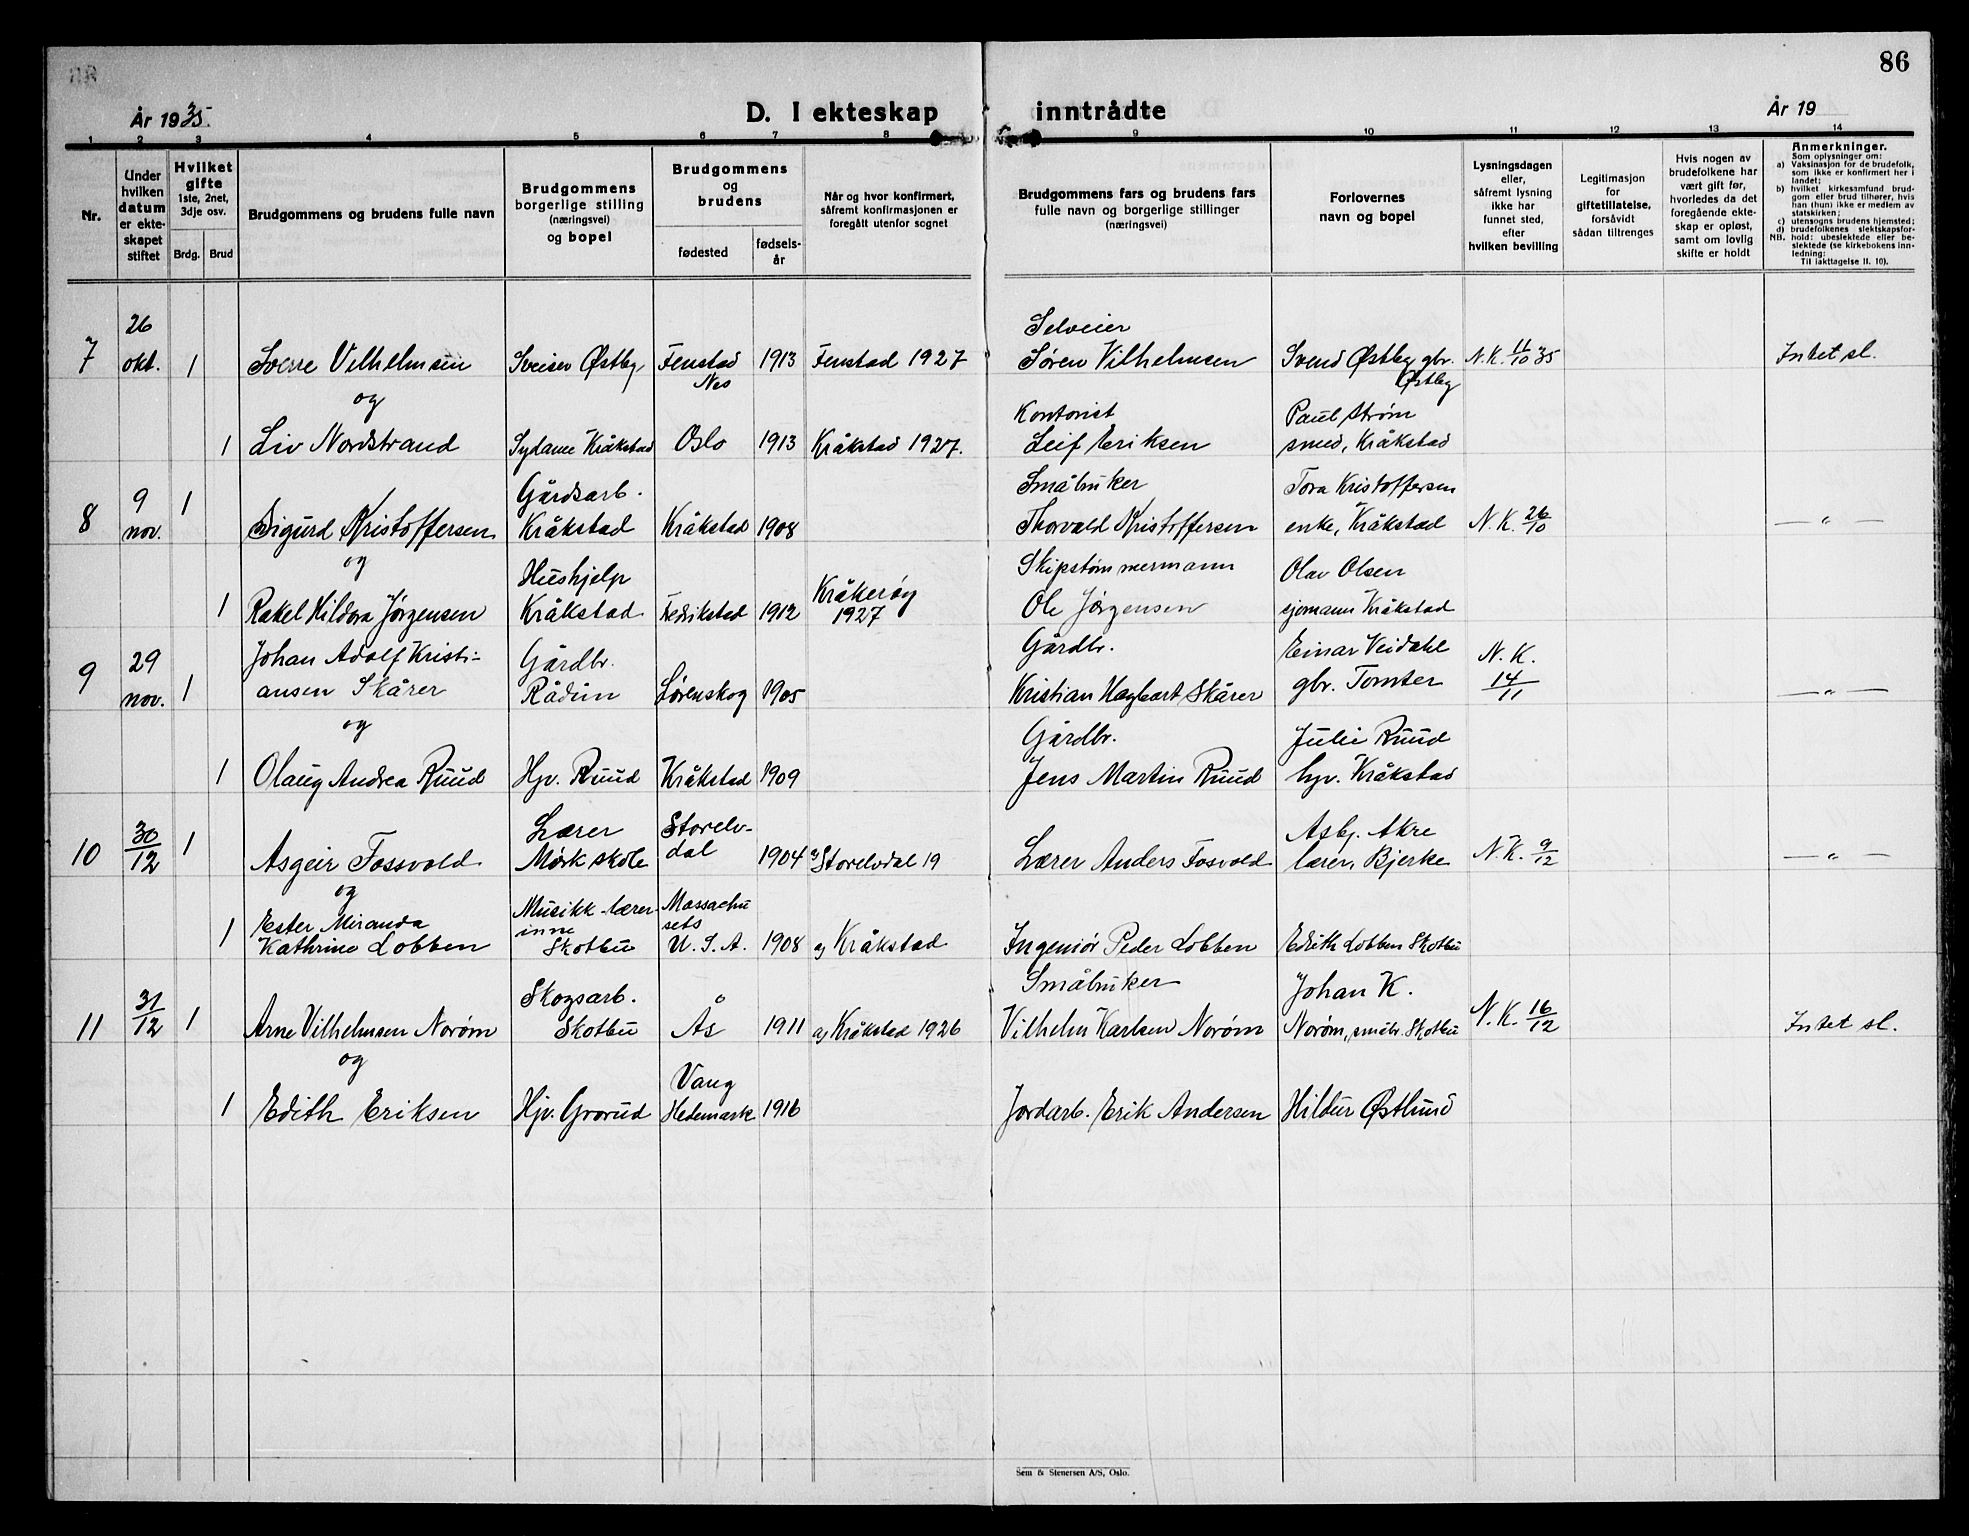 86
År 1935.
D. I ekteskap inntrådte
År 19
1 2 3 4 5 6 7 8 9 10 11 12 13 14
Nr.
Under
hvilken
datum
er ekte-
skapet
stiftet
Hvilket
gifte
1ste, 2net,
3dje osv.
Brdg. Brud
Brudgommens og brudens fulle navn
Brudgommens
borgerlige stilling
(næringsvei)
og bopel
Brudgommens
og
brudens
fødested
fødsels-
år
Når og hvor konfirmert,
såfremt konfirmasjonen er
foregått utenfor sognet
Brudgommens fars og brudens fars
fulle navn og borgerlige stillinger
(næringsvei)
Forlovernes
navn og bopel
Lysningsdagen
eller,
såfremt lysning
ikke har
funnet sted,
efter
hvilken bevilling
Legitimasjon
for
giftetillatelse,
forsåvidt
sådan tiltrenges
Hvis nogen av
brudefolkene har
vært gift før,
hvorledes da det
foregående ekte-
skap er opløst,
samt om lovlig
skifte er holdt
Anmerkninger.
Som oplysninger om:
a) Vaksinasjon for de brudefolk,
som ikke er konfirmert her i
landet;
b) hvilket kirkesamfund brud-
gom eller brud tilhører, hvis
han (hun) ikke er medlem av
statskirken;
c) utensogns brudens hjemsted;
d) brudefolkenes slektskapsfor-
NB. hold: ubeslektede eller be-
slektede (se kirkebokens inn-
ledning:
Til iakttagelse II. 10).
7
26
okt.
1
Sverre Vilhelmsen
Sveiser Østby
Fenstad
Nes
1913
Fenstad 1927
Selveier
Søren Vilhelmsen
Svend Østby gbr.
Østby
N.K. 11/10 35
Intet sl.
og
1
Liv Nordstrand
Sydame Kråkstad
Oslo
1913
Kråkstad 1927.
Kontorist
Leif Eriksen
Paul Strøm
smed, Kråkstad
8
9
nov.
1
Sigurd Kristoffersen
Gårdsarb.
Kråkstad
Kråkstad
1908
Småbruker
Thorvald Kristoffersen
Tora Kristoffersen
enke, Kråkstad
N.K. 26/10
— „ —
og
1
Rakel Hildora Jørgensen
Hushjelp
Kråkstad
Fedrikstad
1912
Kråkerøy
1927
Skipstømmermann
Ole Jørgensen
Olav Olsen
sjømann Kråkstad
9
29
nov.
1
Johan Adolf Kristi-
ansen Skårer
Gårdbr.
Rådim
Lørenskog
1905
Gårdbr.
Kristian Hagbart Skårer
Einar Veidahl
gbr. Tomter
N.K.
14/11
— „ —
og
1
Olaug Andrea Ruud
Hjv. Ruud
Kråkstad
1909
Gårdbr.
Jens Martin Ruud
Julie Ruud
hjv. Kråkstad
10
30/12
1
Asgeir Fossvold
Lærer
Mørk skole
Storelv-
dal
1904
Storelvdal 19
Lærer Anders Fosvold
Asbj. Akre
lærer, Bjerke
N.K. 9/12
— „ —
og
1
Ester Miranda
Kathrine Lobben
Musikk-lærer-
inne
Skotbu
Massachu
sets
U.S.A.
1908
a) Kråkstad
Ingeniør Peder Lobben
Edith Lobben Skotbu
11
31/12
1
Arne Vilhelmsen Norøm
Skogsarb.
Skotbu
Ås
1911
a) Kråkstad 1926
Småbruker
Vilhelm Karlsen Norøm
Johan K.
Norøm, småbr. Skotbu
N.K. 16/12
Intet sl.
og
1
Edith Eriksen
Hjv. Grorud
Vang
Hedemark
1916
Jordarb. Erik Andersen
Hildur Østlund
Sem & Stenersen A/S, Oslo.